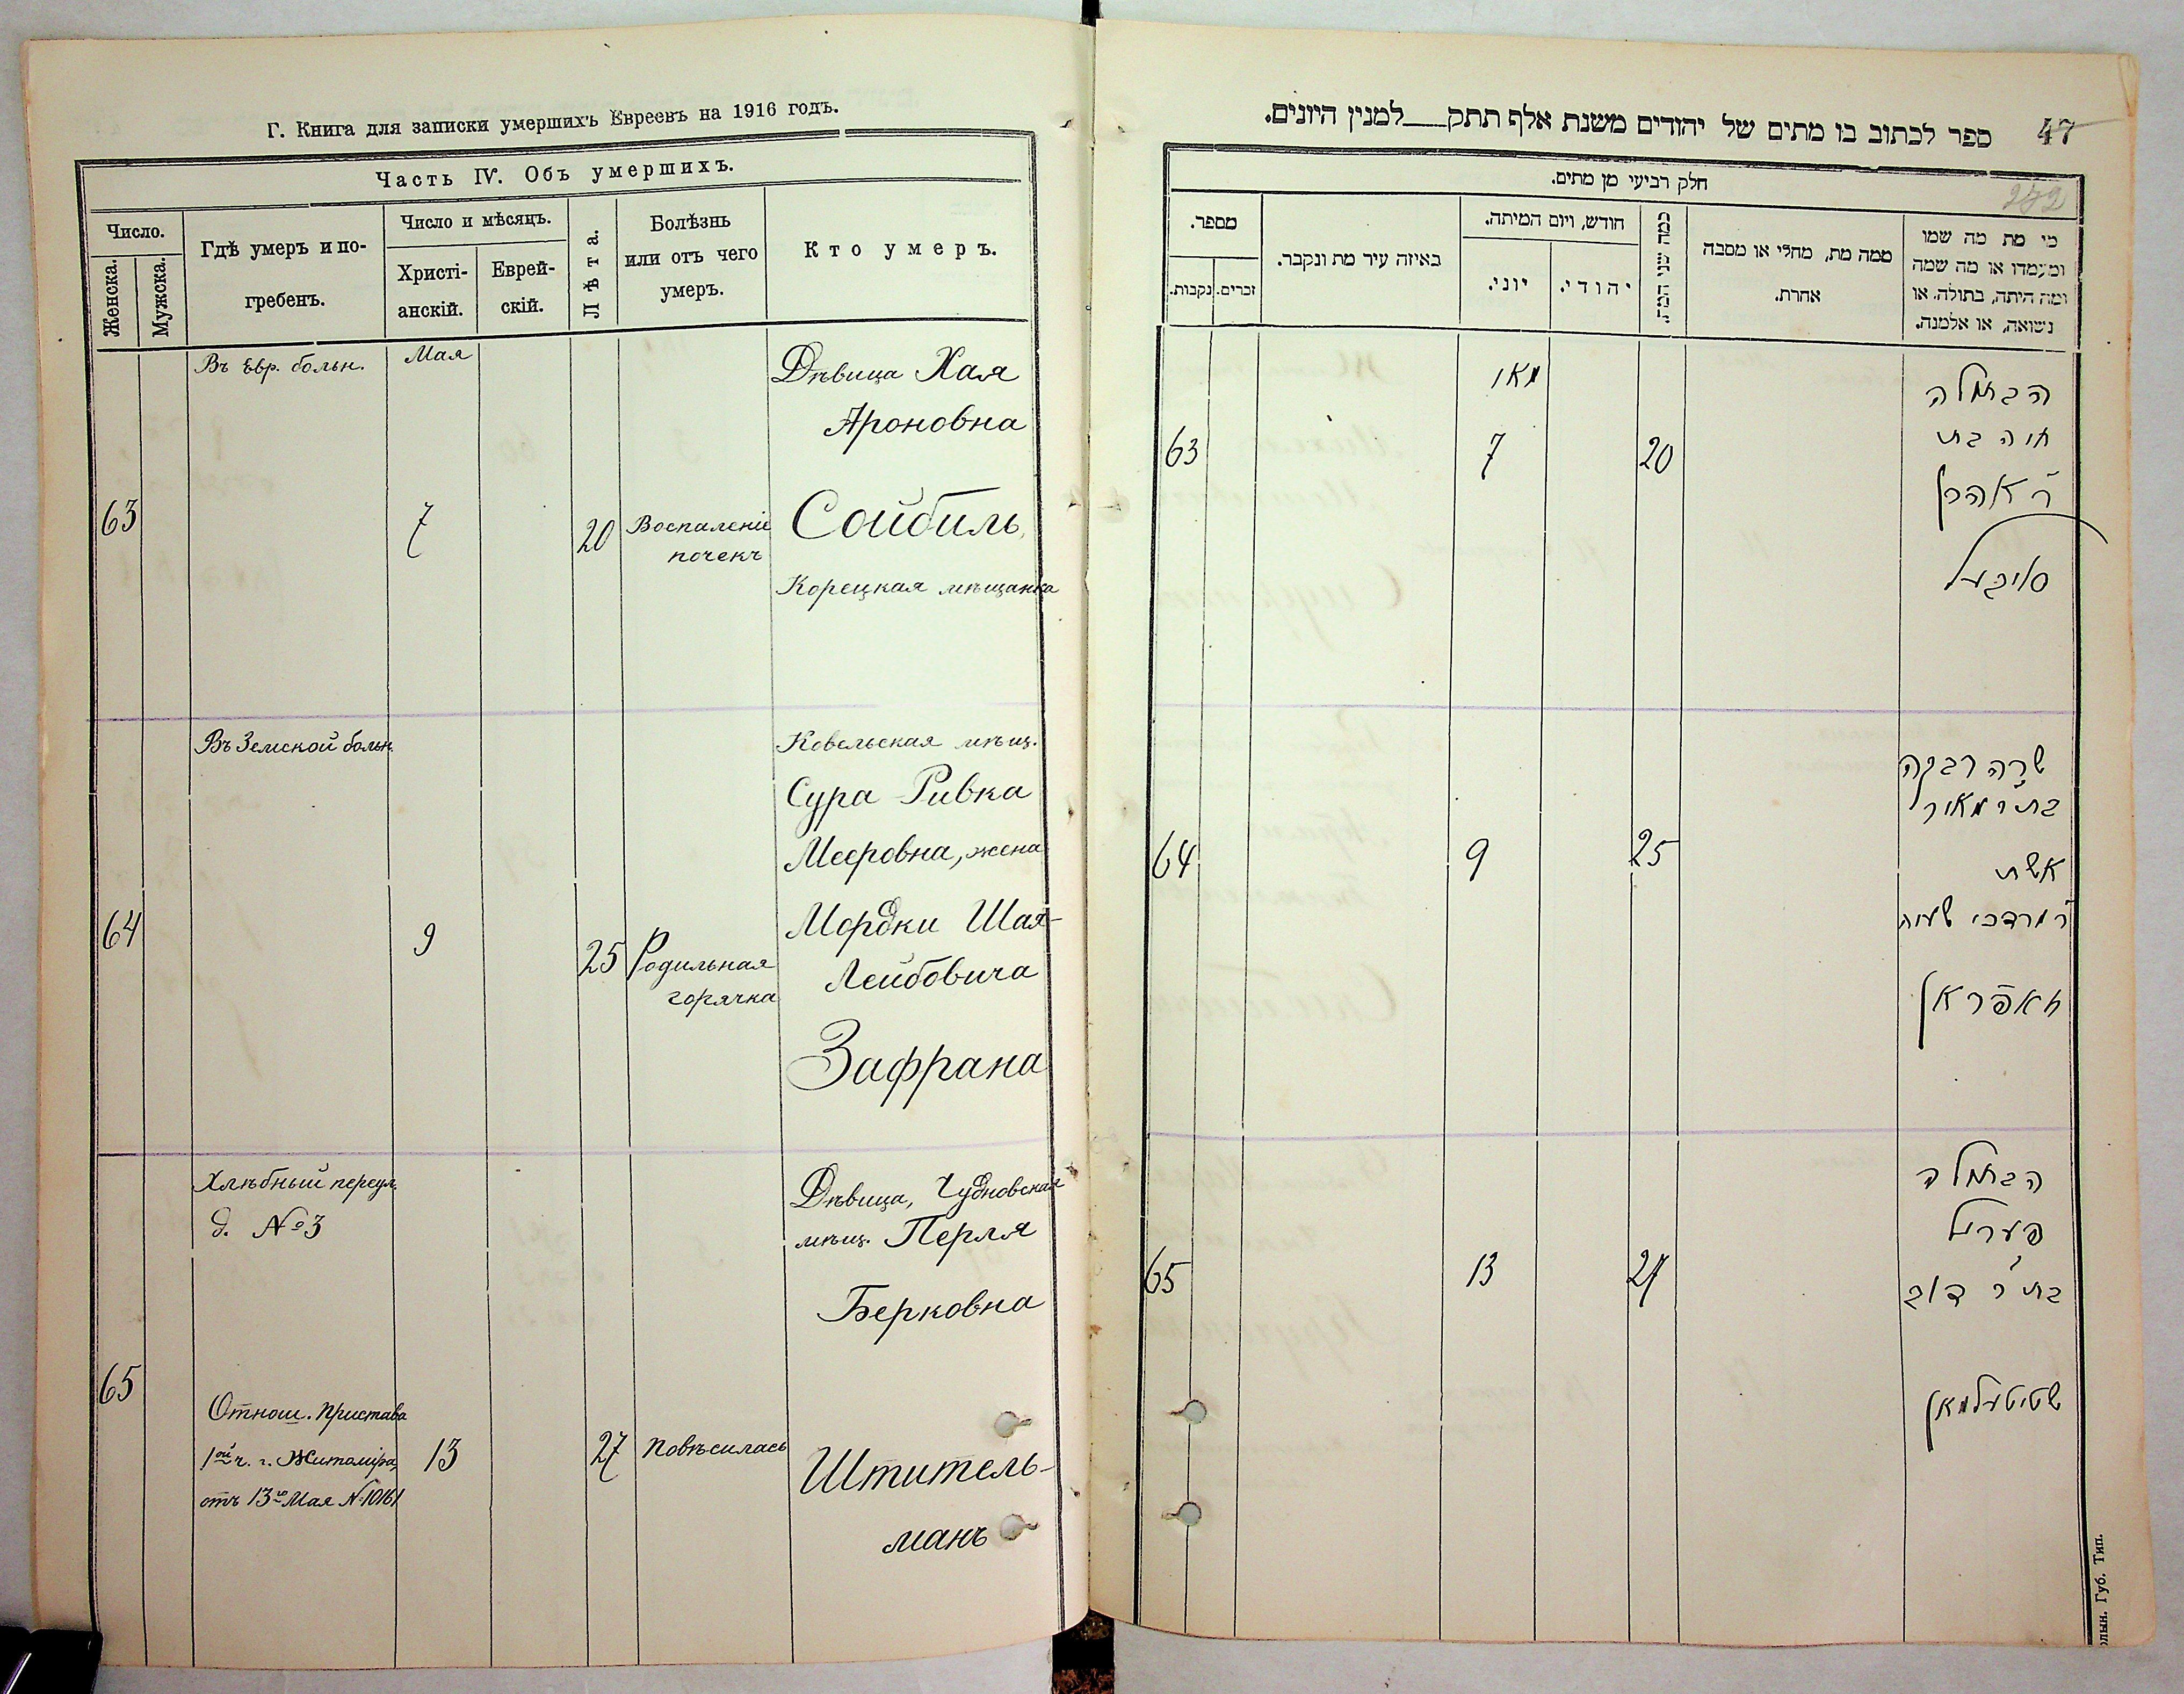 Г. Книга для записки умершихъ Евреевъ на 1916 годъ.
Часть IV. Объ умершихъ.
Число.
Женска.
Мужска.
Гдѣ умеръ и по-
гребенъ.
Число и мѣсяцъ.
Христі-
анскій.
Еврей-
скій.
Лѣта.
Болѣзнь
или отъ чего
умеръ.
Кто умеръ.
63
Въ Евр. больн.
Мая
7
20
Воспаленіе
почекъ
Дѣвица Хая
Ароновна
Сойбиль
Корецкая мѣщанка
64
Въ Земской больн.
9
25
Родильная
горячка
Ковельская мѣщ.
Сура Ривка
Мееровна, жена
Мордки Шая-
Лейбовича
Зафрана
65
Хлѣбный переул.
д. №3
Отнош. Пристава
1ой ч. г. Житоміра,
отъ 13го Мая №10161
13
27
Повѣсилась
Дѣвица, Чудновская
мѣщ. Перля
Берковна
Штитель-
манъ
ספר לכתוב בו מתים של יהודים משנת אלף תתק__למנין היונים.
47
272
חלק רביעי מן מתים.
מספר.
נקבות.
זכרים.
באיזה עיר מת ונקבר.
חודש, ויום המיתה.
יוני.
יהודי.
כמה שני המת
ממה מת, מחלי או מסבה
אחרת.
מי מת מה שמו
ומעמדו או מה שמה
ומה היתה, בתולה, או
נשואה, או אלמנה.
63
מאי
7
20
הבתולה
חיה בת
ר' אהרן
סויבעל
64
9
25
שרה רבקה
בת ר' מאיר
אשת
ר' מרדכי שעיה
זאפראן
65
13
27
הבתולה
פערל
בת ר' דוב
שטיטעלמאן
олын. Губ. Тип.